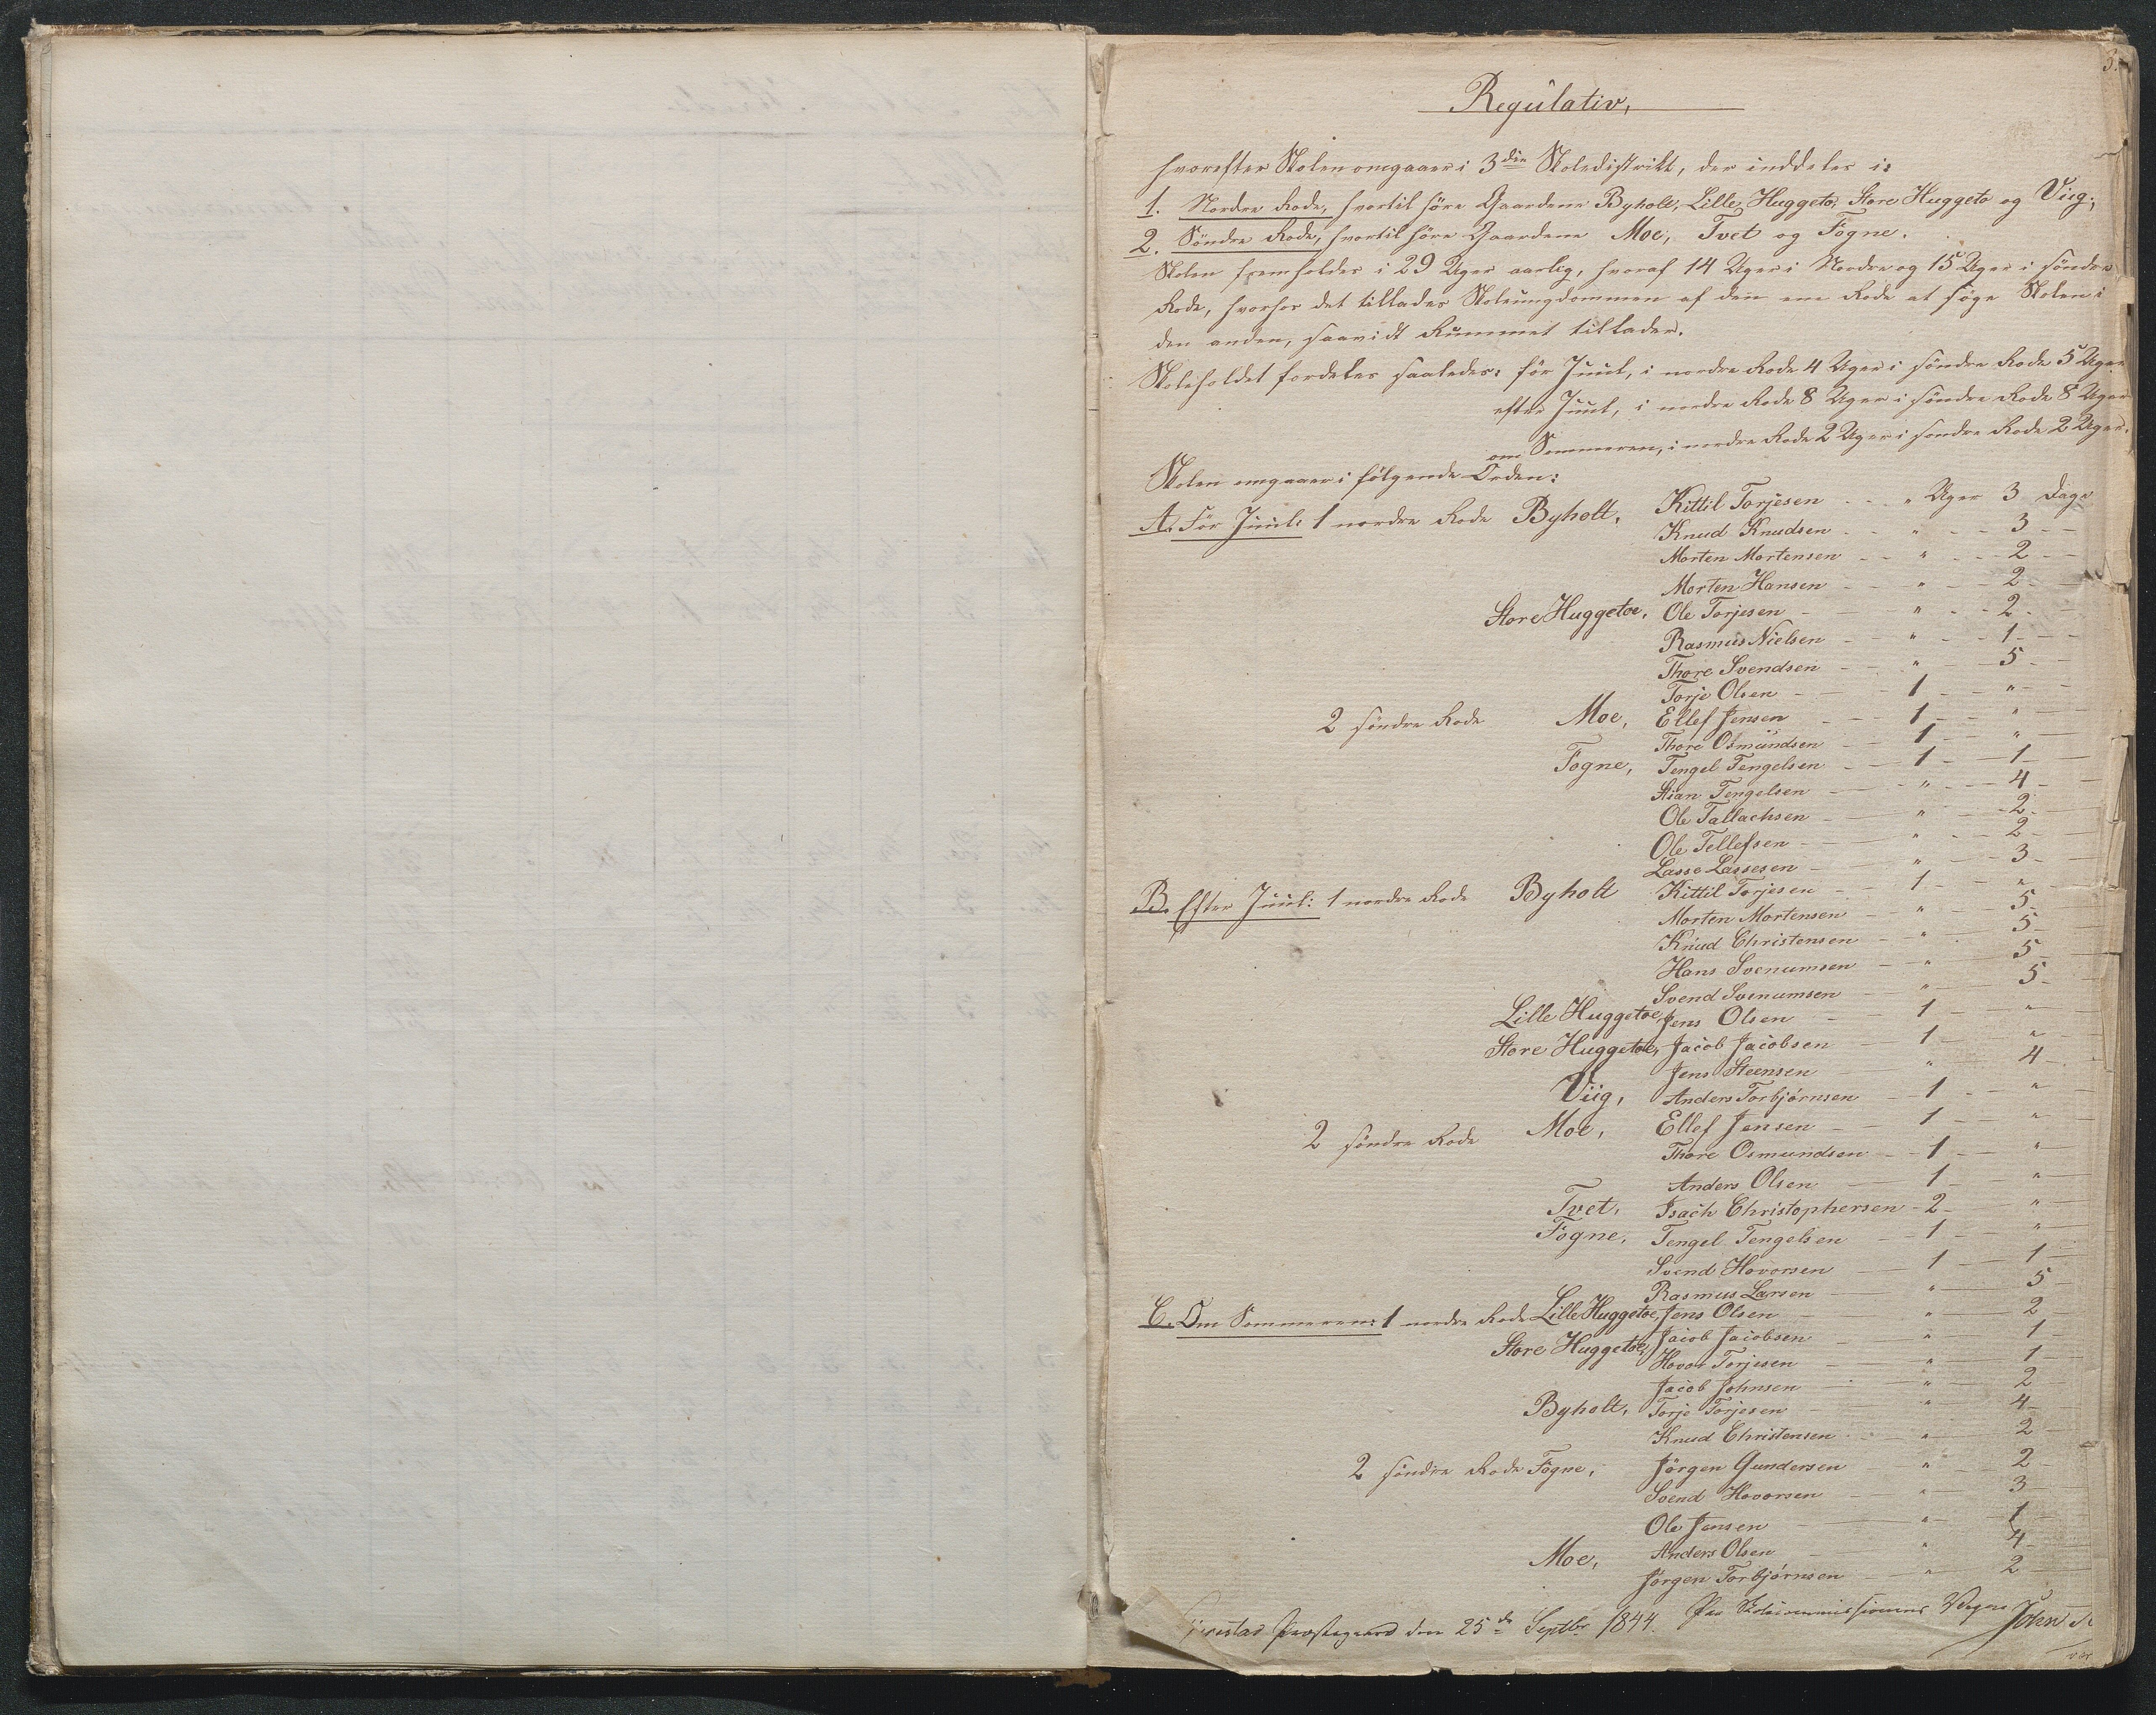 3.
Regulativ,
hvorefter Skolen omgaaer i 3die Skoledistrikt, der inddeles i:
1. Nordre Rode, hvortil höre Gaardene Byholt, Lille Huggeto, Store Huggeto og Viig;
2. Söndre Rode, hvortil höre Gaardene Moe, Tvet og Fögne.
Skolen fremholdes i 29 Uger aarlig, hvoraf 14 Uger i Nordre og 15 Uger i söndre
Rode, hvorhos det tillades Skoleungdommen af den ene Rode at söge Skolen i
den anden, saavidt Rummet tillader.
Skoleholdet fordeles saaledes: för Juul, i nordre Rode 4 Uger i söndre Rode 5 Uger
efter Juul, i nordre Rode 8 Uger i söndre Rode 8 Uger
om Sommeren, i nordre Rode 2 Uger i söndre Rode 2 Uger.
Skolen omgaaer i fölgende Orden:
A. För Juul: 1 nordre Rode Byholt, Kittil Torjesen - - " Uger 3 Dage
Knud Knudsen - - " - - 3 - -
Morten Mortensen - - " - - 2 - -
Morten Hansen - - " - - 2 - -
Store Huggetoe, Ole Torjesen - - " - - 2 -
Rasmus Nielsen - - " - - 1 - -
Thore Svendsen - - " - - 5 - -
Torje Olsen - - 1 - - " - -
2 söndre Rode Moe, Ellef Jensen - - 1 - - " -
Thore Osmundsen - - 1 - - " -
Fögne, Tengel Tengelsen - - 1 - - 1 -
Stian Tengelsen - - " - - 4 -
Ole Tallachsen - - " - - 2 -
Ole Tellefsen - - " - - 2 -
Lasse Lassesen - - " - - 3 -
B. Efter Juul: 1 nordre Rode Byholt Kittil Torjesen - - 1 - - " -
Morten Mortensen - " - 5 -
Knud Christensen - " - 5 -
Hans Svenumsen - " - 5 -
Svend Svenumsen - " - 5 -
Lille Huggetoe, Jens Olsen - 1 - " -
Store Huggetoe, Jacob Jacobsen - 1 - " -
Jens Steensen - " - 4 -
Viig, Anders Torbjørnsen - 1 - " -
2 söndre Rode Moe, Ellef Jensen - 1 - " -
Thore Osmundsen - 1 - " -
Anders Olsen - 1 - " -
Tvet, Isach Christophersen - 2 - " -
Fögne, Tengel Tengelsen - 1 - " -
Svend Hovorsen - 1 - 1 -
Rasmus Larsen - " - 5 -
C. Om Sommeren: 1 nordre Rode Lille Huggetoe, Jens Olsen - " - 2 -
Store Huggetoe, Jacob Jacobsen - " - 1 -
Hovor Torjesen - " - 1 -
Jacob Johnsen - " - 2 -
Byholt, Torje Torjesen - " - 4 -
Knud Christensen - " - 2 -
2 söndre Rode Fögne, Jörgen Gundersen " - 2 -
Svend Hovorsen - " - 3 -
Ole Jensen - " - 1 -
Moe, Anders Olsen - " - 4 -
Jörgen Torbjørnsen - " - 2 -
Præstegaard den 25de Septbr 1844. Paa Skolecommissionens Vegne
John